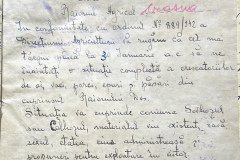 Raionul Agricol
In conformitate cu ordinul Nº 889/952 a
Direcțiunii Agricultură vă rugăm ca cel mai
târziu până la 30 Ianuarie a.c. să ne
înaintați o situație completă a crescătoriilor
de oi, vaci, porci, epuri și păsări din
cuprinsul Raionului Dvs.
Situația va cuprinde comuna Sofhozul
sau Colhozul, materialul viu existent, rasă
sexul, etatea, cine administrează și
propuneri pentru exploatare în viitor